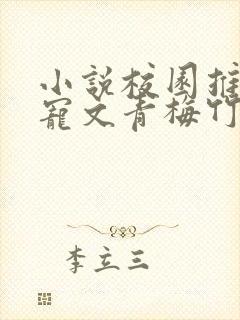 小說校園推
寵文青梅竹
李立三